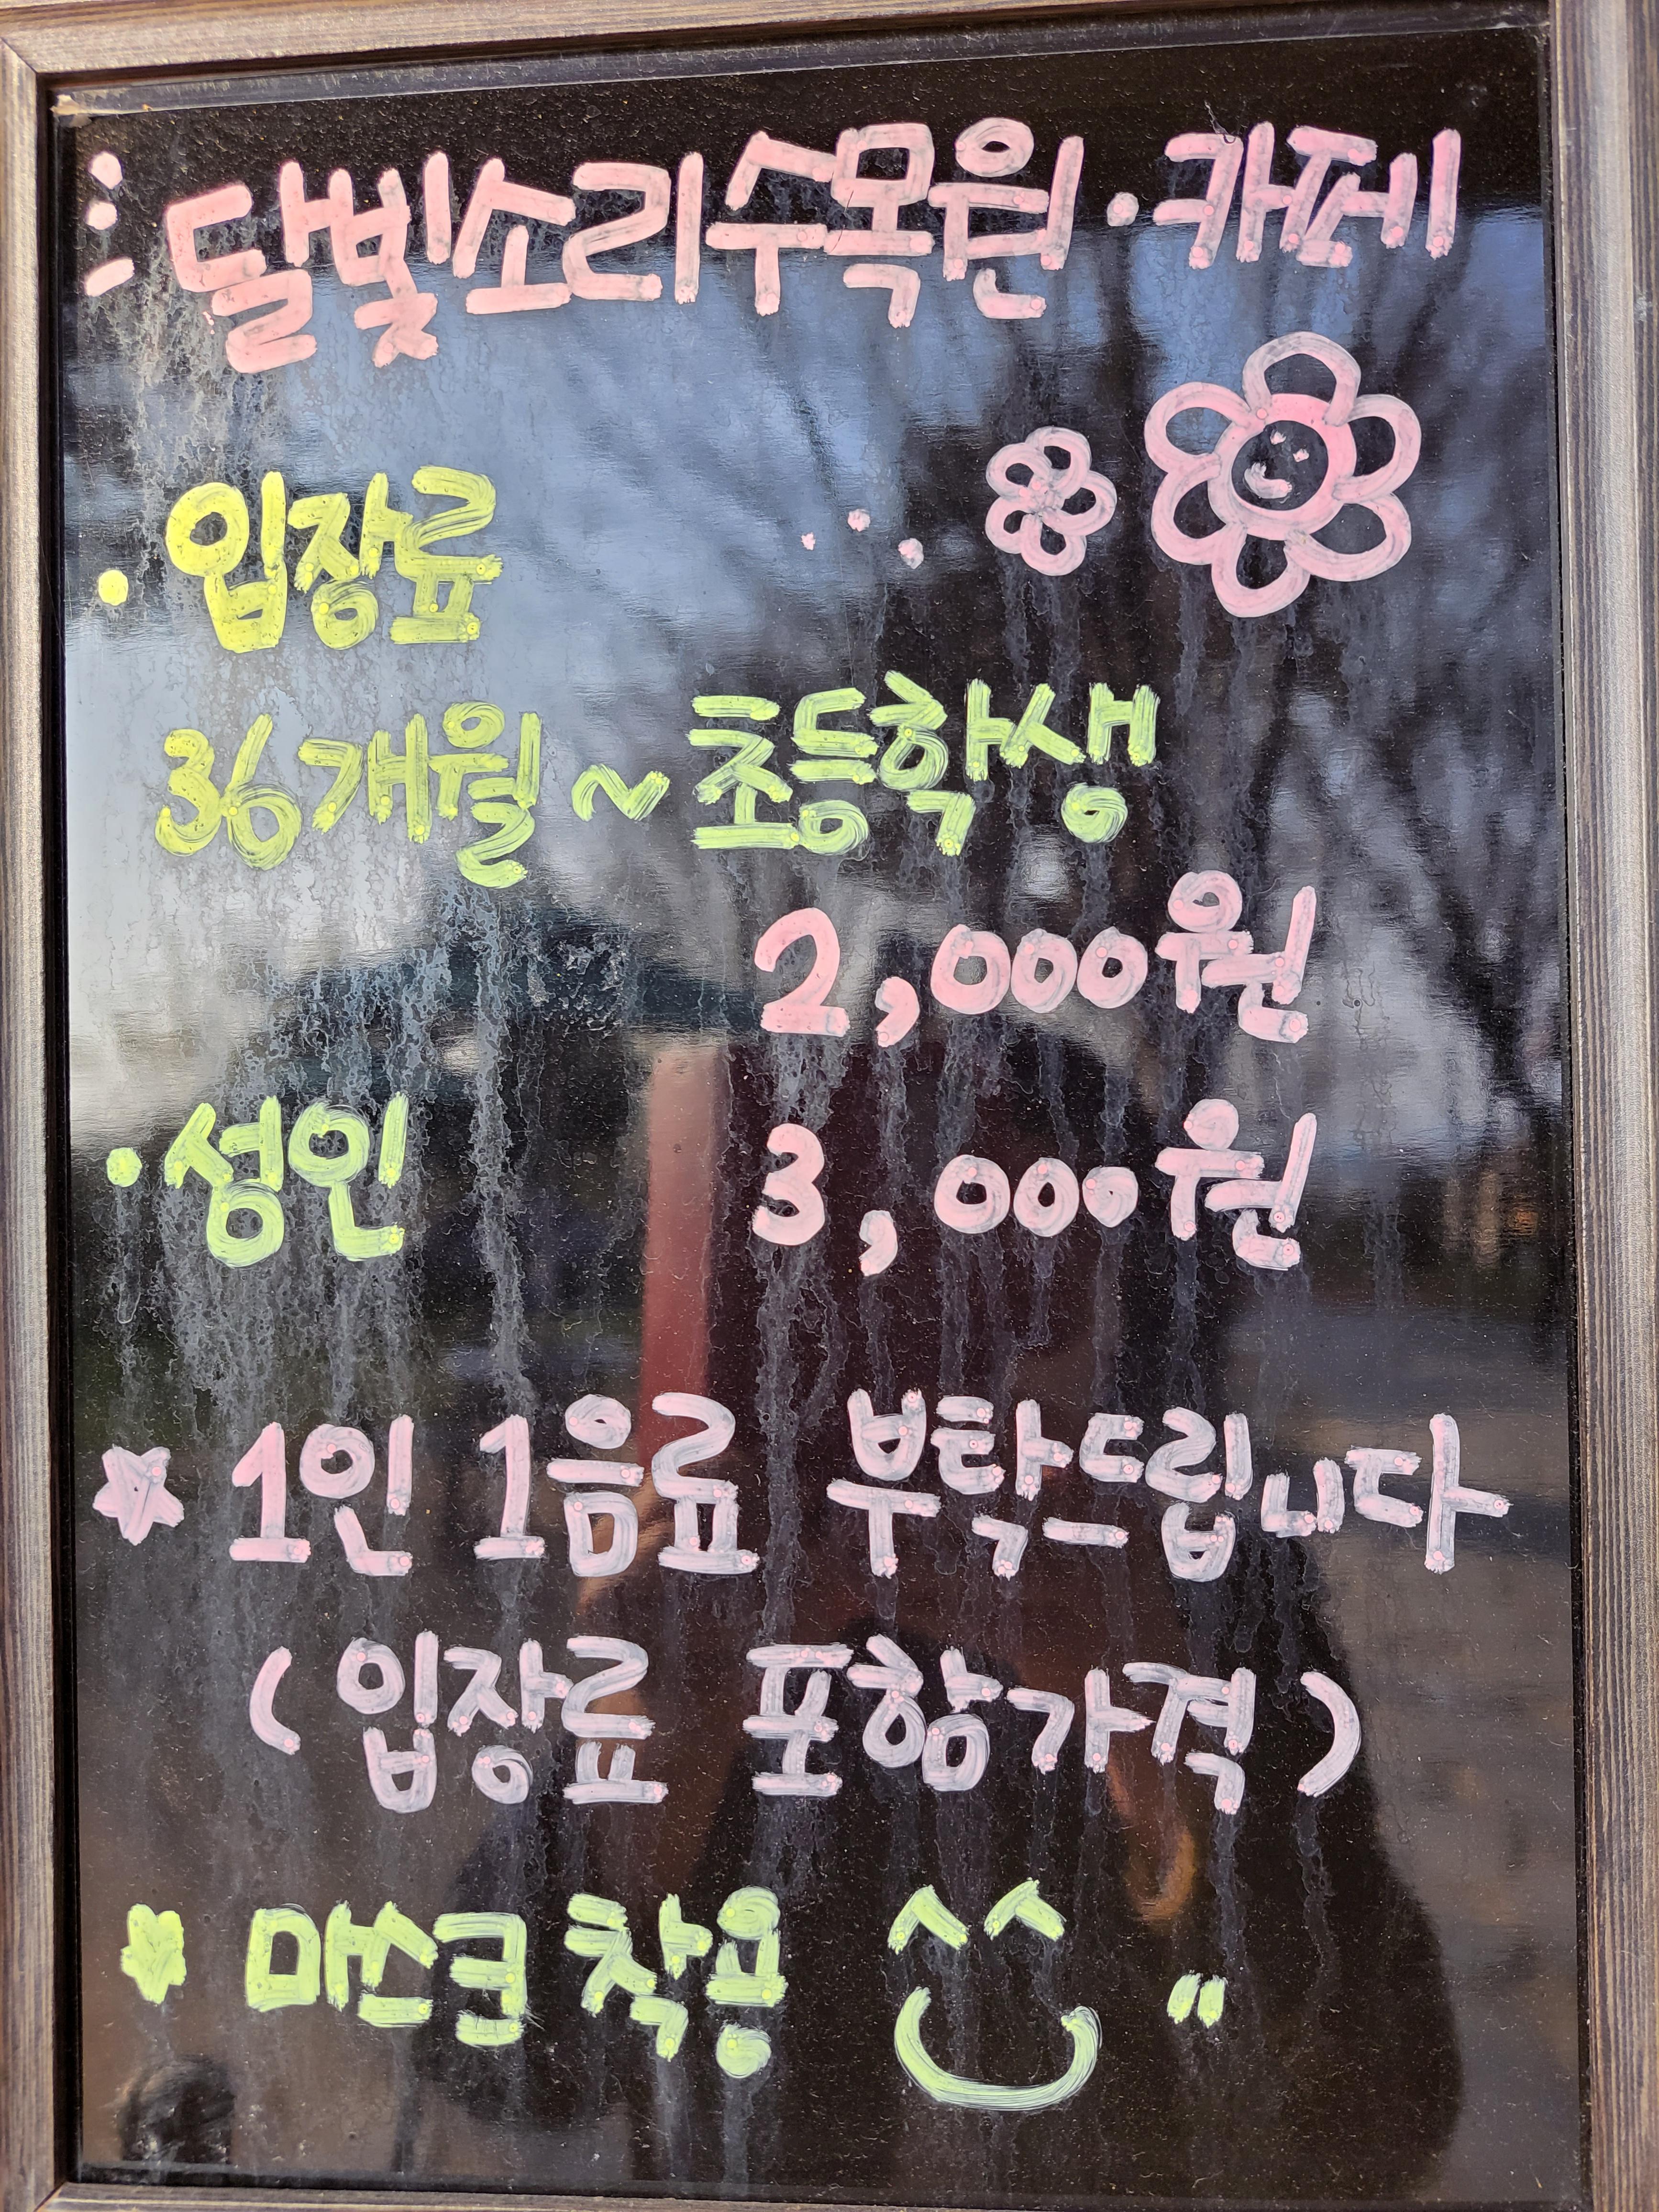 달빛소리수목원·카페
· 입장료
36개월 ~ 초등학생
2,000원
· 성인 3,000원
☆ 1인 1음료 부탁드립니다
(입장료 포함가격)
☆ 마스크 착용 ^^ "